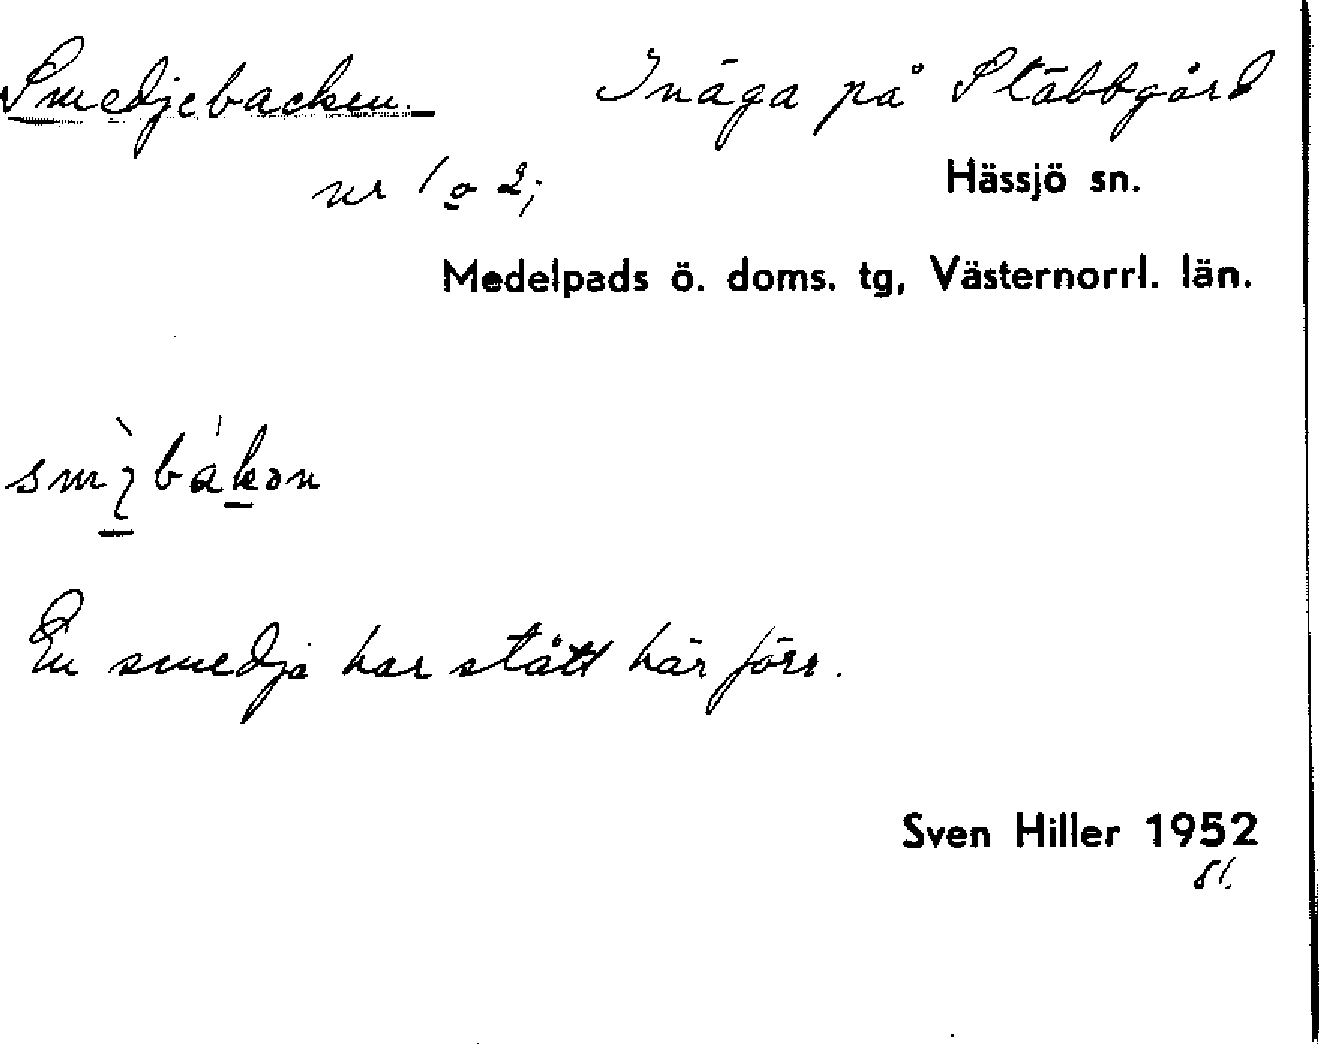 Smedjebacken. Inäga på Stäbbgård
nr 1 o 2;
Hässjö sn.
Medelpads ö. doms. tg, Västernorrl. län.
En smedja har stått här förr.
Sven Hiller 1952
51.